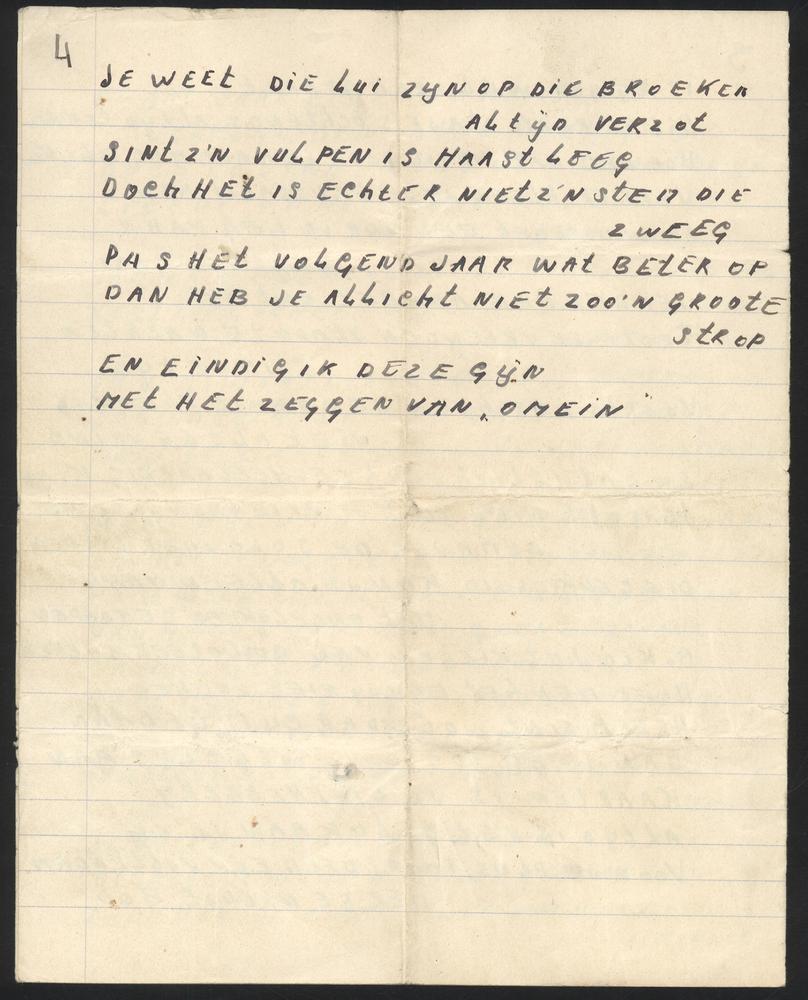 4
JE WEEt DiE Lui zijN OP DiE BROEKEN
ALtijD VERZOt
SINt Z'N VULPEN IS HAASt LEEG
DOCh HEt IS EChtER NIEt Z'N StEM DIE
ZWEEG
PAS HEt VOLGEND JAAR WAt BEtER OP
DAN HEB JE ALLIChT NIEt ZOO'N GROOtE
StROP
EN EiNDiG IK DEZE GijN
MEt HEt ZEGGEN VAN „OMEiN"